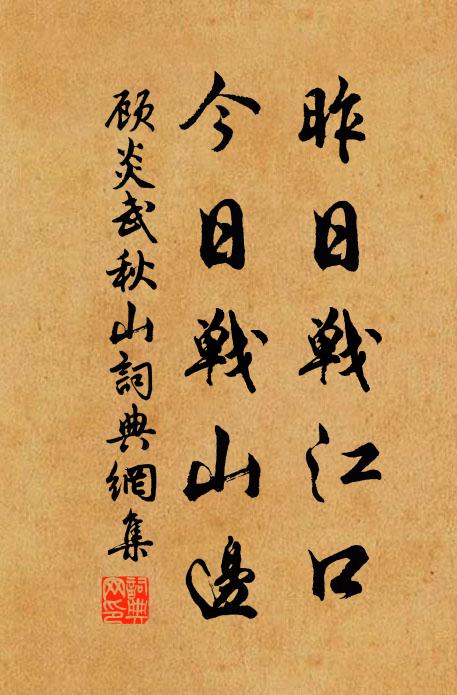 昨日戰江口
今日戰山邊
顾炎武秋山詞典網集
詞典網印